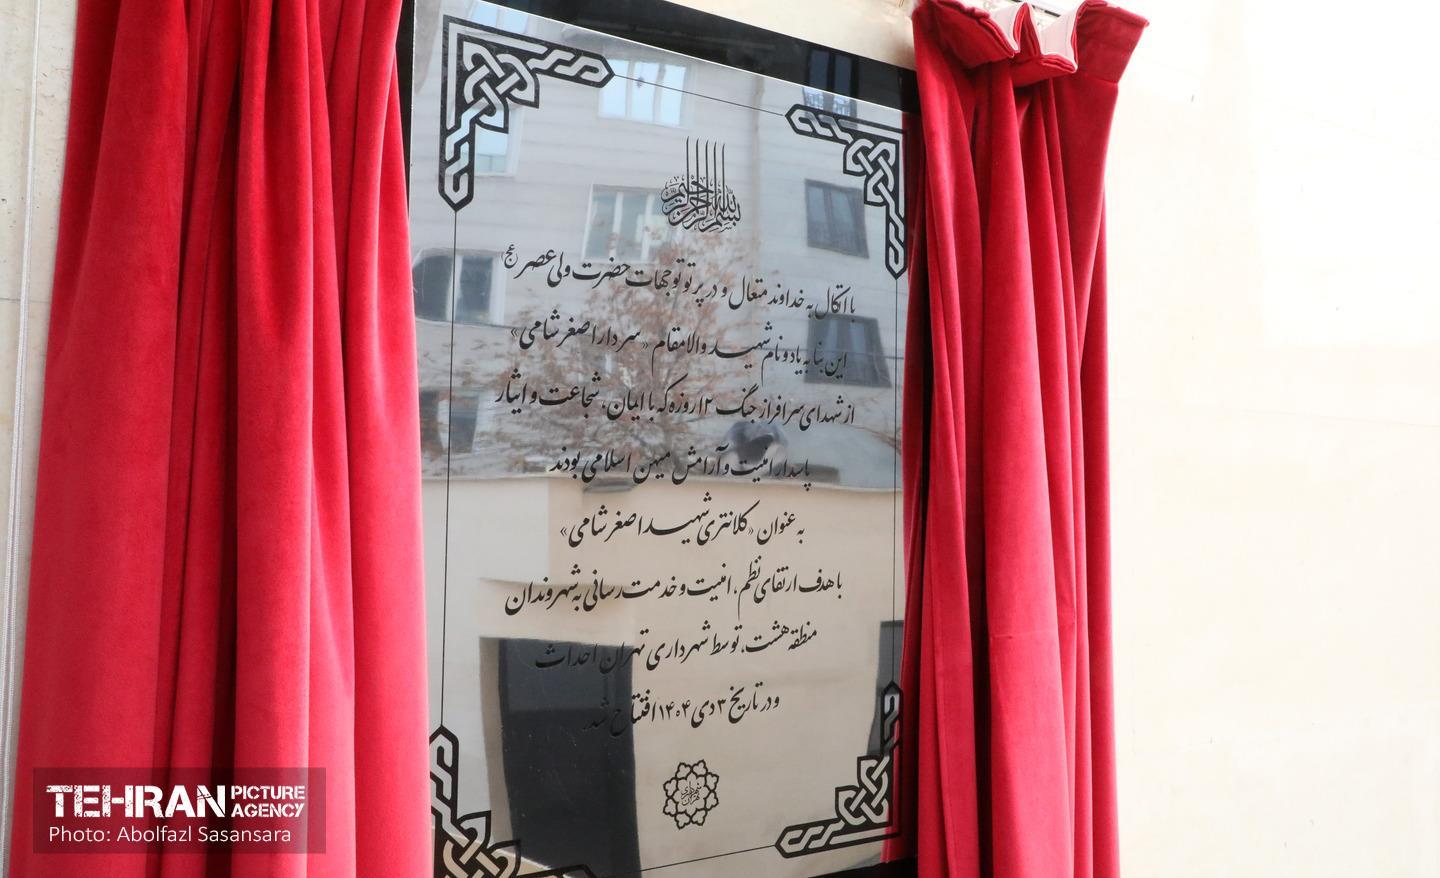 بسم الله الرحمن الرحیم
با اتکال به خداوند متعال و در پرتو توجهات حضرت ولی عصر (عج)
این بنا به یاد و نام شهید والامقام «سردار اصغر شامی»
از شهدای سرافراز جنگ ۱۲ روزه که با ایمان، شجاعت و ایثار
پاسدار امنیت و آرامش میهن اسلامی بودند
به عنوان «کلانتری شهید اصغر شامی»
با هدف ارتقای نظم، امنیت و خدمت رسانی به شهروندان
منطقه هشت، توسط شهرداری تهران احداث
و در تاریخ ۳ دی ۱۴۰۴ افتتاح شد.
شهرداری تهران
TEHRAN PICTURE AGENCY
Photo: Abolfazl Sasansara